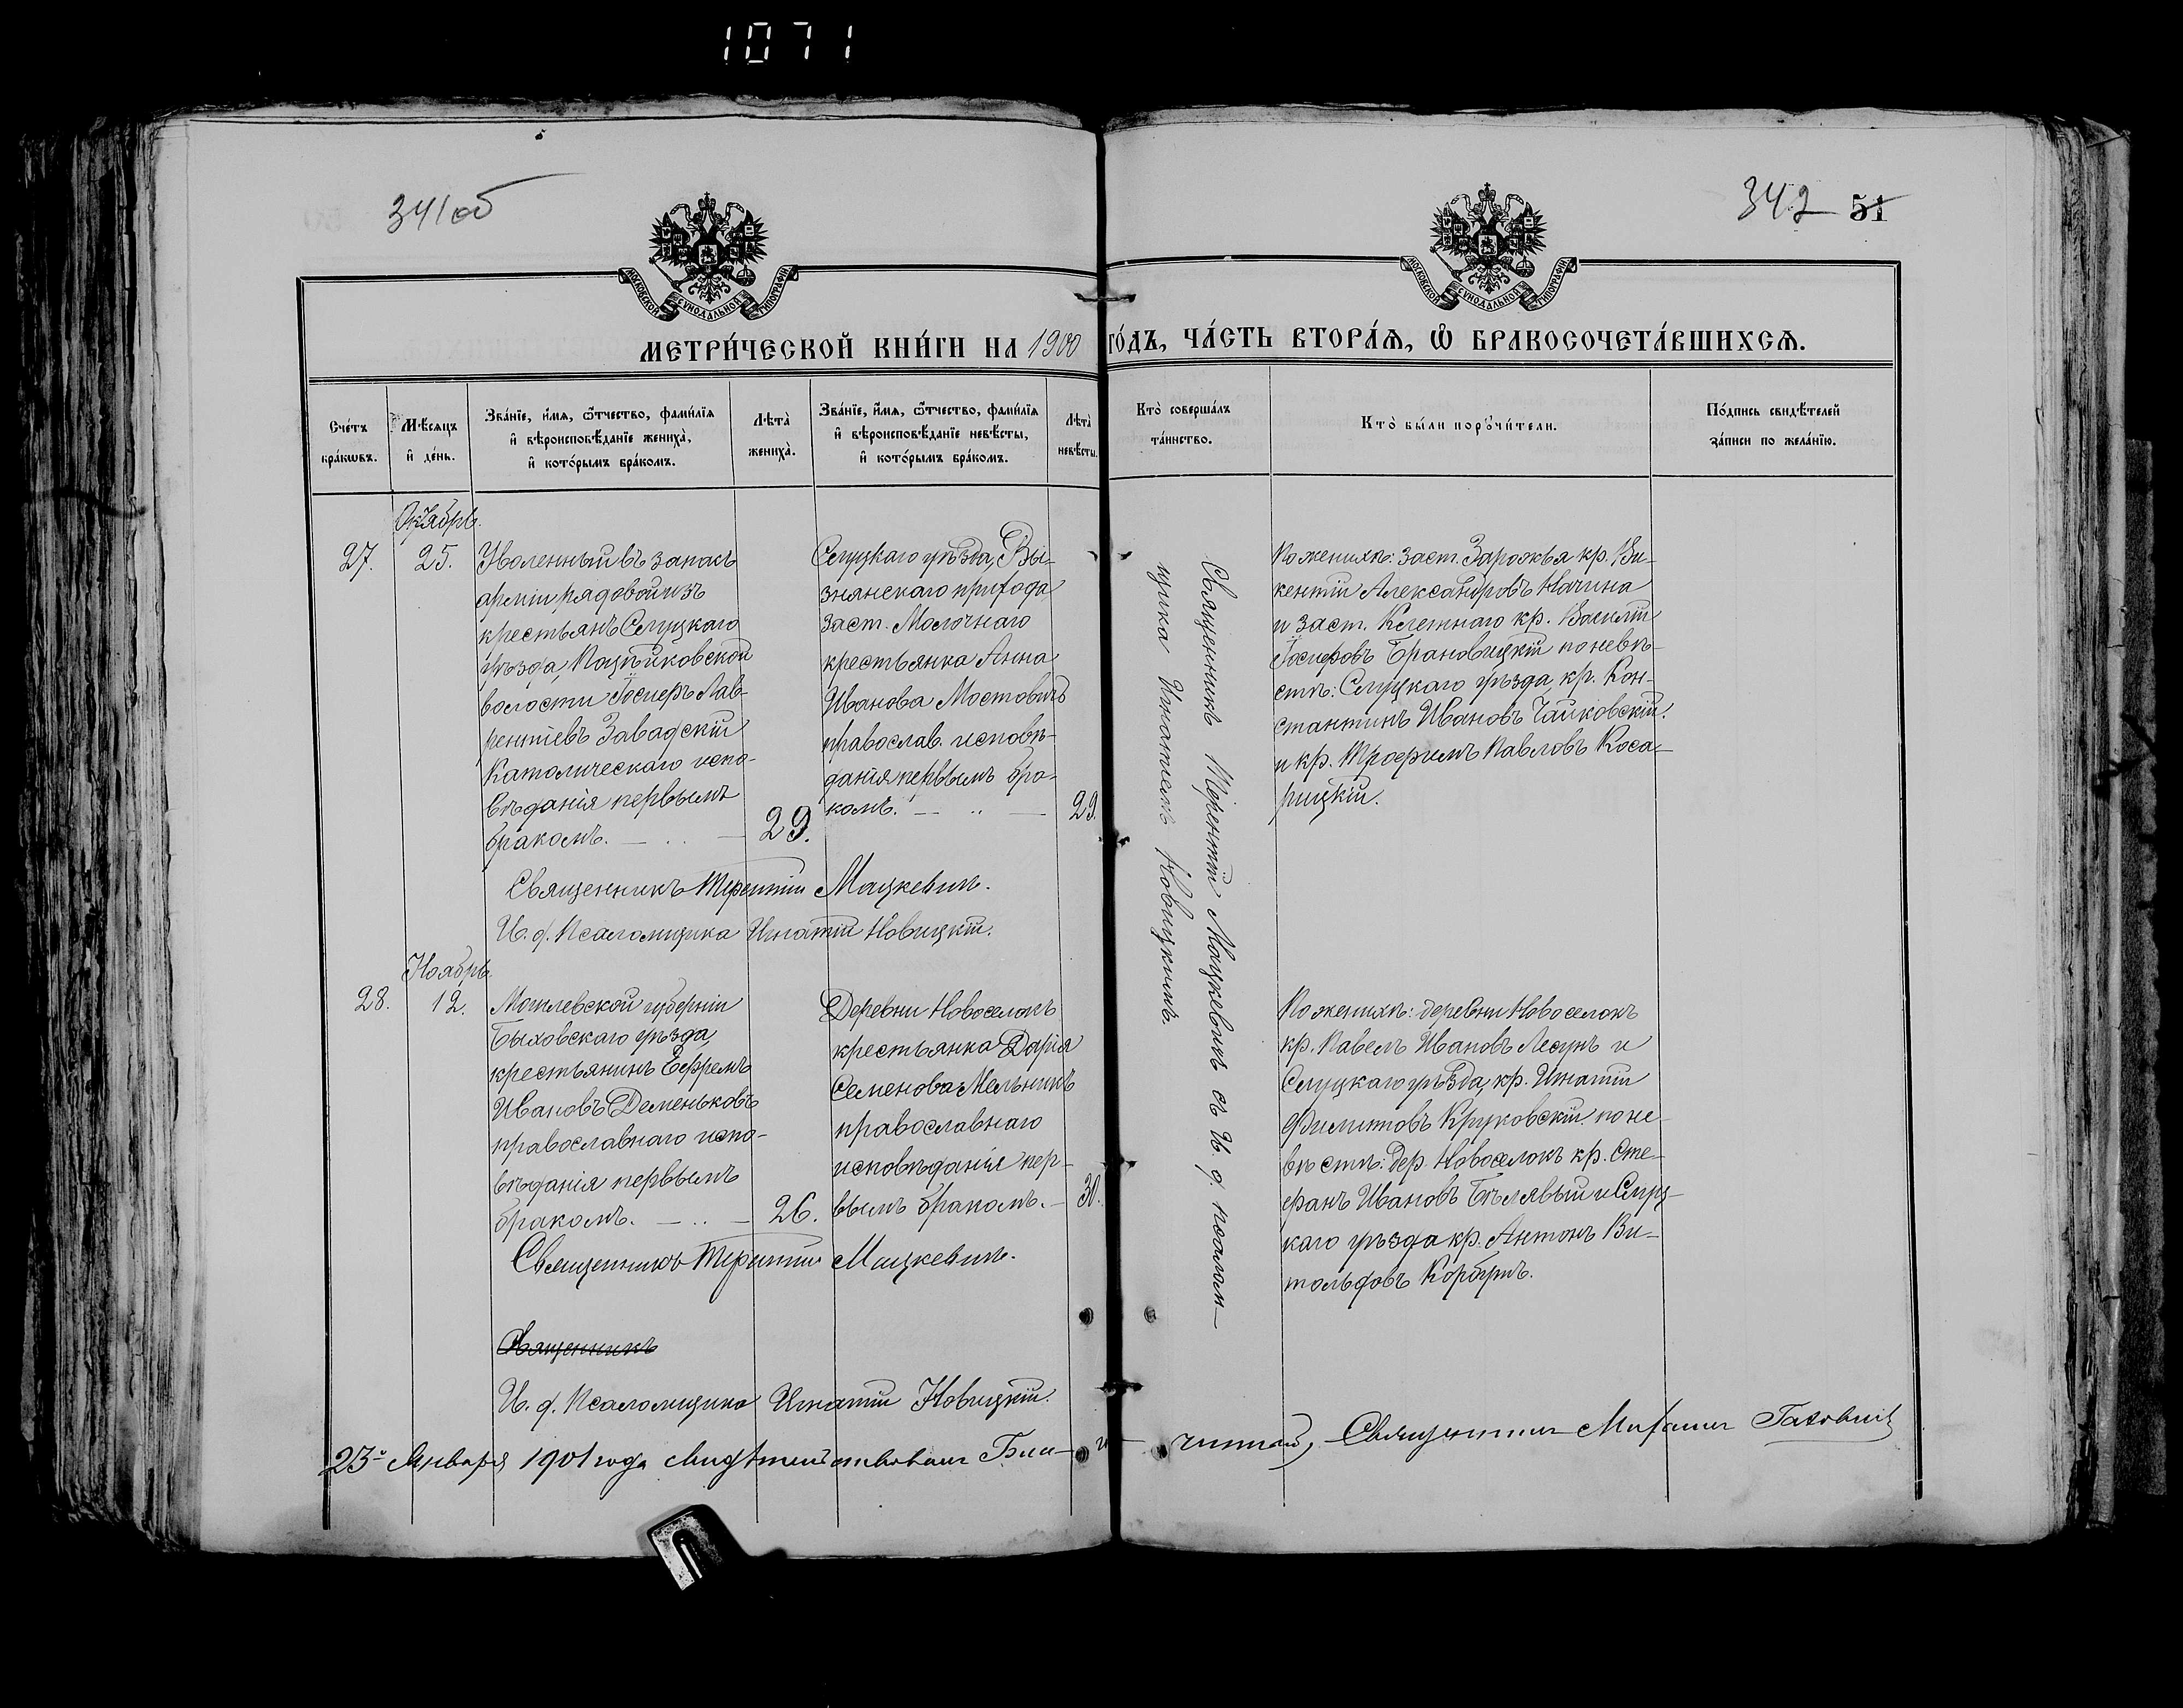 1071
341об
342 51
МОСКОВСКОЙ СѴНОДАЛЬНОЙ ТИПОГРАФІИ
МОСКОВСКОЙ СѴНОДАЛЬНОЙ ТИПОГРАФІИ
МЕТРИ́ЧЕСКОЙ КНИ́ГИ НА 1900 ГО́ДЪ, ЧА́СТЬ ВТОРА́Ѧ, Ѡ҆ БРАКОСОЧЕТА́ВШИХСѦ.
Сче́тъ бра́кωвъ.
Мѣ́сѧцъ и҆ де́нь.
Зва́нїе, и҆́мѧ, ѻ҆́тчество, фами́лїѧ
и҆ вѣроисповѣ́данїе жениха̀,
и҆ кото́рымъ бра́комъ.
Лѣта̀ жениха̀.
Зва́нїе, и҆́мѧ, ѻ҆́тчество, фами́лїѧ
и҆ вѣроисповѣ́данїе невѣ́сты,
и҆ кото́рымъ бра́комъ.
Лѣта̀ невѣ́сты.
Кто̀ соверша́лъ
та́инство.
Кто̀ бы́ли порꙋчи́тели.
По́дпись свидѣ́телей
за́писи по жела́нїю.
Октябрь.
27.
25.
Уволенный въ запасъ
арміи рядовой изъ
крестьянъ Слуцкаго
уѣзда, Поцѣйковской
волости Іосифъ Лав-
рентіевъ Завадскій
Католическаго испо-
вѣданія первымъ
бракомъ.
29.
Слуцкаго уѣзда, Вы-
знянскаго прихода
заст. Молочнаго
крестьянка Анна
Иванова Мостовичъ
православ. исповѣ-
данія первымъ бра-
комъ.
29.
Священникъ Терентій Мацкевичъ съ И. д. псалом-
щика Игнатіемъ Новицкимъ.
По женихѣ: заст. Зарожья кр. Ви-
кентій Александровъ Начина
и заст. Клетнаго кр. Василій
Іосифовъ Брановицкій по невѣ-
стѣ: Слуцкаго уѣзда, кр. Кон-
стантинъ Ивановъ Чайковскій
и кр. Трофимъ Павловъ Коса-
рицкій.
Священникъ Терентій Мацкевичъ.
И. д. Псаломщика Игнатій Новицкій.
Ноябрь.
28.
12.
Могилевской губерніи
Быховскаго уѣзда,
крестьянинъ Ефремъ
Ивановъ Деменьковъ
православнаго испо-
вѣданія первымъ
бракомъ.
26.
Деревни Новоселокъ
крестьянка Дарія
Семенова Мельникъ
православнаго
исповѣданія пер-
вымъ бракомъ.
30.
По женихѣ: деревни Новоселокъ
кр. Павелъ Ивановъ Лесунъ и
Слуцкаго уѣзда, кр. Игнатій
Филиповъ Круковскій по не-
вѣстѣ: дер. Новоселокъ кр. Сте-
фанъ Ивановъ Бѣлявый и Слуц-
каго уѣзда кр. Антонъ Ви-
тольдовъ Корбутъ.
Священникъ Терентій Мацкевичъ.
Священникъ
И. д. Псаломщика Игнатій Новицкій.
23го Января 1901 года свидѣтельствовалъ Благочинный, Священникъ Михаилъ